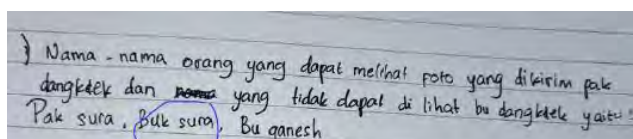 ) Nama - nama orang yang dapat melihat foto yang dikirim pak
dangktek dan yang tidak dapat di lihat bu dangktek yaitu :
Pak sura, Buk sura, Bu ganesh